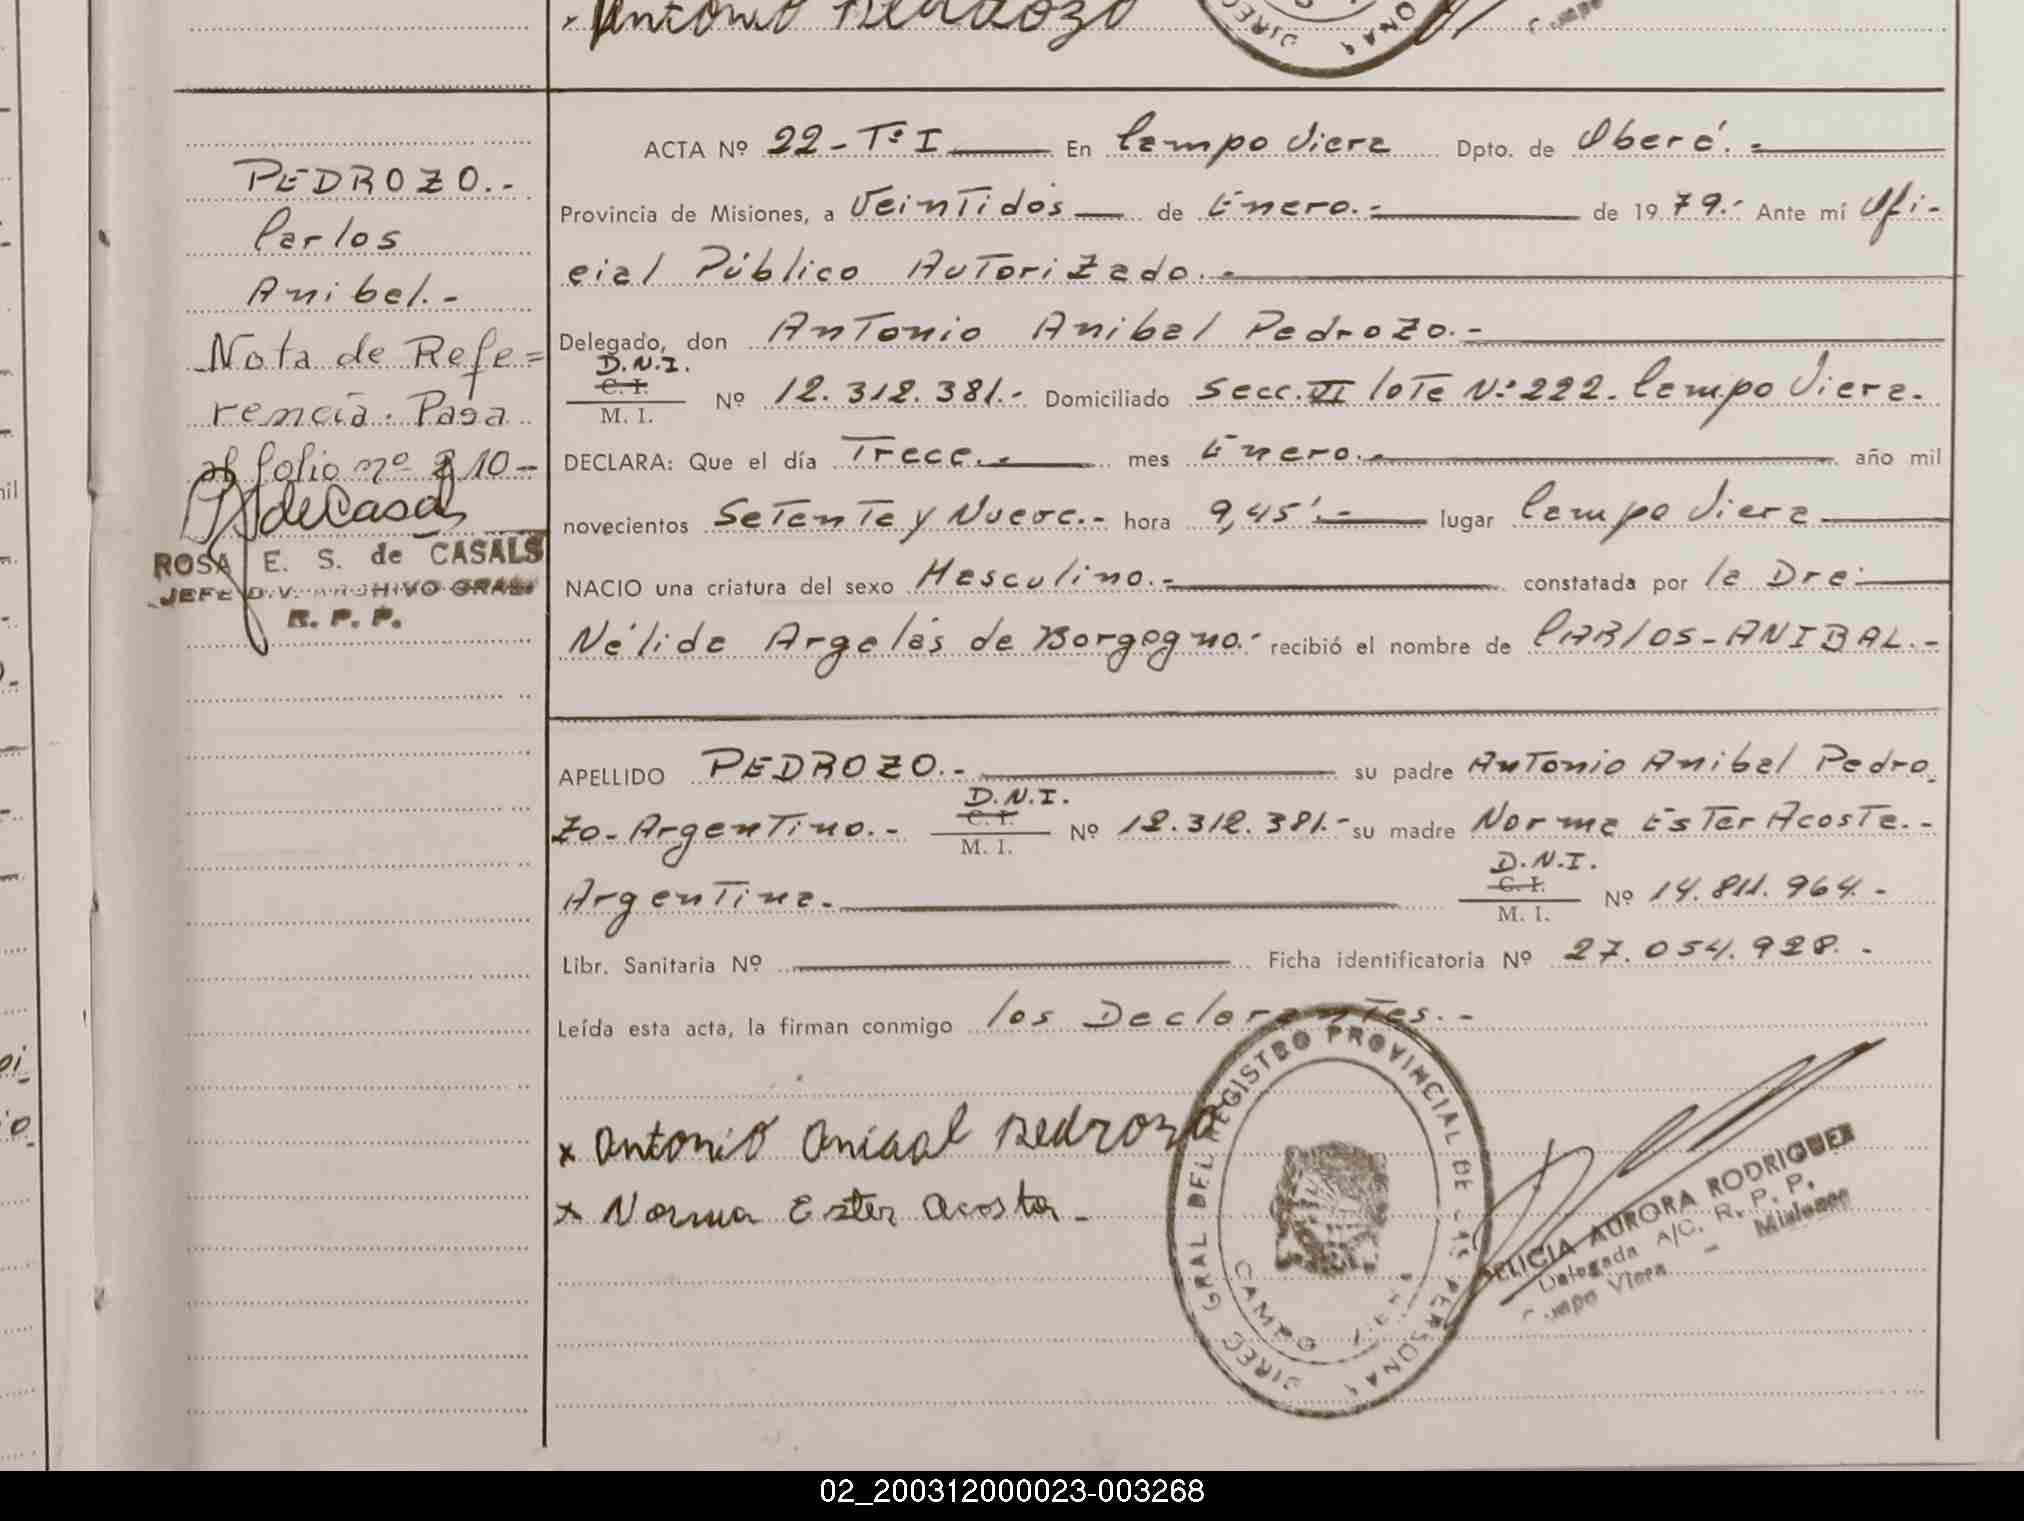 Antonio
PEDROZO.-
Carlos
Anibal.-
Nota de Refe=
rencia. Pasa
al folio nº 210-
deCasals
ROSA E. S. de CASALS
JEFE DIV. ARCHIVO GRAL.
R. P. P.
ACTA Nº 22 - Tº I En Campo Viera Dpto. de Oberá.-
Provincia de Misiones, a Veintidós de Enero.- de 19 79.- Ante mí Ofi-
cial Público Autorizado.-
Delegado, don Antonio Anibal Pedrozo.-
D.N.I.
C. I.
M. I. Nº 12.312.381.- Domiciliado Secc. VI lote Nº 222. Campo Viera.
DECLARA: Que el día Trece.- mes Enero.- año mil
novecientos Setenta y Nueve.- hora 9,45'.- lugar Campo Viera
NACIO una criatura del sexo Masculino.- constatada por la Dra.
Nélida Argelás de Borgogno.- recibió el nombre de CARLOS-ANIBAL.-
APELLIDO PEDROZO.- su padre Antonio Anibal Pedro
D.N.I.
C. I.
zo-Argentino.- M. I. Nº 12.312.381.- su madre Norma Ester Acosta.-
D.N.I.
C. I.
Argentina.- M. I. Nº 14.811.964.-
Libr. Sanitaria Nº Ficha identificatoria Nº 27.054.928.-
Leída esta acta, la firman conmigo los Declarantes.-
x Antonio Anibal Pedrozo
x Norma Ester Acosta-
DIREC GRAL DEL REGISTRO PROVINCIAL DE LAS PERSONAS
CAMPO
FELICIA AURORA RODRIGUEZ
Delegada A/C. R. P. P.
Campo Viera - Misiones
02_200312000023-003268